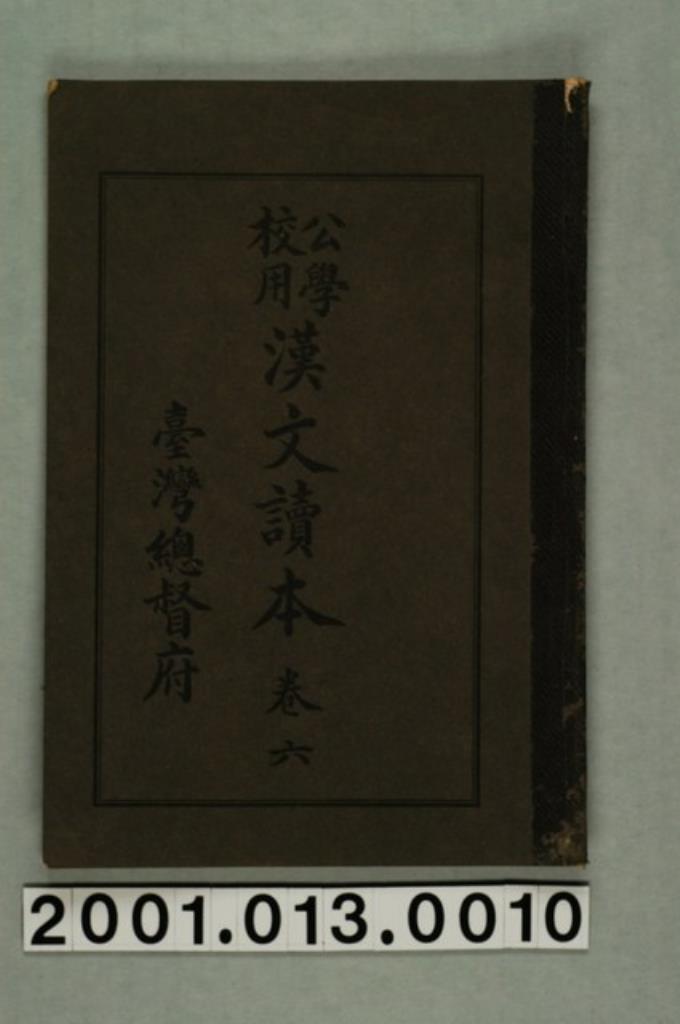 公學
校用
漢文讀本 卷六
臺灣總督府
2001.013.0010